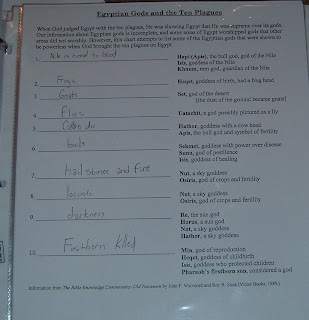 Egyptian Gods and the Ten Plagues
When God judged Egypt with the ten plagues, He was showing Egypt that He was supreme over its gods.
Our information about Egyptian gods is incomplete, and some areas of Egypt worshipped gods that other
areas did not worship. However, this chart attempts to list some of the Egyptian gods that were shown to
be powerless when God brought the ten plagues on Egypt.
1. Nile is turned to blood
Hapi (Apis), the bull god, god of the Nile
Isis, goddess of the Nile
Khnum, ram god, guardian of the Nile
2. Frogs
Heqet, goddess of birth, had a frog head
3. Gnats
Set, god of the desert
[the dust of the ground became gnats]
4. Flys
Uatachit, a god possibly pictured as a fly
5. Cattle die
Hathor, goddess with a cow head
Apis, the bull god and symbol of fertility
6. boils
Sekmet, goddess with power over disease
Sunu, god of pestilence
Isis, goddess of healing
7. hail stones and fire
Nut, a sky goddess
Osiris, god of crops and fertility
8. locusts
Nut, a sky goddess
Osiris, god of crops and fertility
9. darkness
Re, the sun god
Horus, a sun god
Nut, a sky goddess
Hathor, a sky goddess
10. Firstborn killed
Min, god of reproduction
Heqet, goddess of childbirth
Isis, goddess who protected children
Pharaoh's firstborn son, considered a god
Information from The Bible Knowledge Commentary: Old Testament by John F. Walvoord and Roy B. Zuck (Victor Books, 1985.)